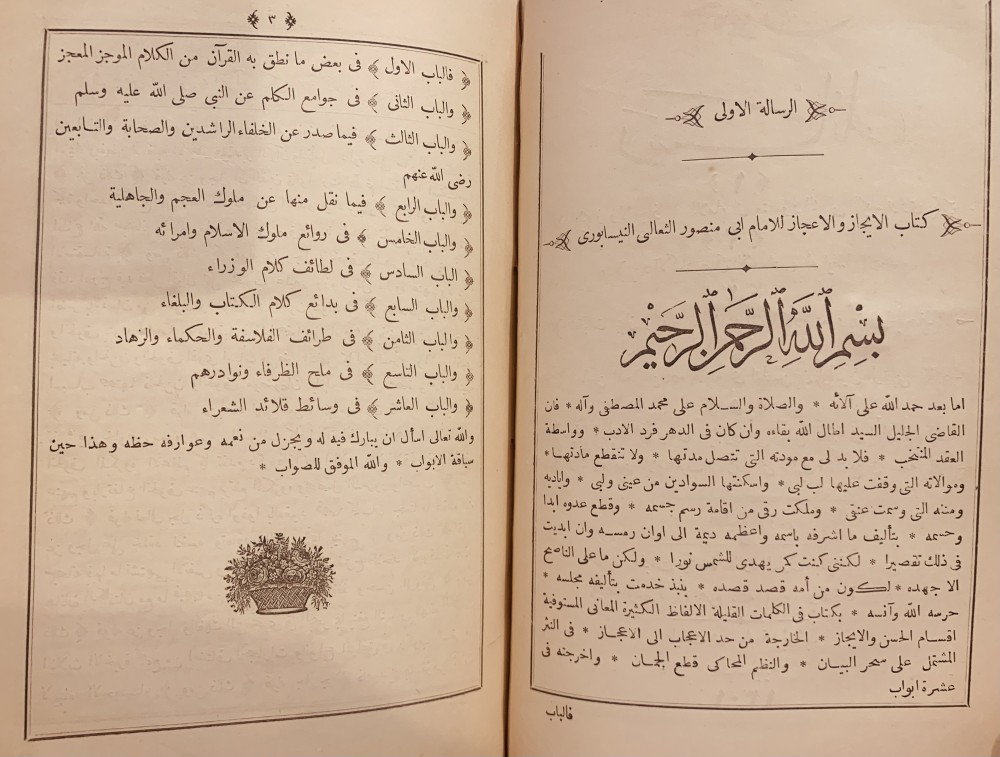 الرسالة الاولى
كتاب الايجاز والاعجاز للامام ابى منصور الثعالبى النيسابورى
بسم الله الرحمن الرحيم
اما بعد حمد الله على آلائه * والصلاة والسلام على محمد المصطفى وآله * فان
القاضى الجليل السيد اطال الله بقاءه وان كان فى الدهر فرد الادب * وواسطة
العقد المنتخب * فلا بد لى مع مودته التى تتصل مدتها * ولا تنقطع مادتها *
وموالاته التى وقفت عليها لب لبى * واسكنتها السوادين من عينى ولبى * واياديه
ومننه التى وسمت عنقى * وملكت رقى من اقامة رسم جسمه * وقطع عدوه ابدا
وحسمه * بتأليف ما اشرفه باسمه واعظمه ديمة الى اوان رمسه وان ابديت
فى ذلك تقصيرا * لكننى كنت كمن يهدى للشمس نورا * ولكن ما على الناصح
الا جهده * لكون من أمه قصد قصده * بنبذ خدمت بتأليفه مجلسه *
حرسه الله وآنسه * بكتاب فى الكلمات القليلة الالفاظ الكثيرة المعانى المستوفية
اقسام الحسن والايجاز * الخارجة من حد الاعجاب الى الاعجاز * فى النثر
المشتمل على سحر البيان * والنظم المحاكى قطع الجمان * واخرجته فى
عشرة ابواب
فالباب
﴿ ٣ ﴾
﴿ فالباب الاول ﴾ فى بعض ما نطق به القرآن من الكلام الموجز المعجز
﴿ والباب الثانى ﴾ فى جوامع الكلم عن النبى صلى الله عليه وسلم
﴿ والباب الثالث ﴾ فيما صدر عن الخلفاء الراشدين والصحابة والتابعين
رضى الله عنهم
﴿ والباب الرابع ﴾ فيما نقل منها عن ملوك العجم والجاهلية
﴿ والباب الخامس ﴾ فى روائع ملوك الاسلام وامرائه
﴿ الباب السادس ﴾ فى لطائف كلام الوزراء
﴿ والباب السابع ﴾ فى بدائع كلام الكتاب والبلغاء
﴿ والباب الثامن ﴾ فى طرائف الفلاسفة والحكماء والزهاد
﴿ والباب التاسع ﴾ فى ملح الظرفاء ونوادرهم
﴿ والباب العاشر ﴾ فى وسائط قلائد الشعراء
والله تعالى اسأل ان يبارك فيه له ويجزل من نعمه وعوارفه حظه وهذا حين
سياقة الابواب * والله الموفق للصواب *